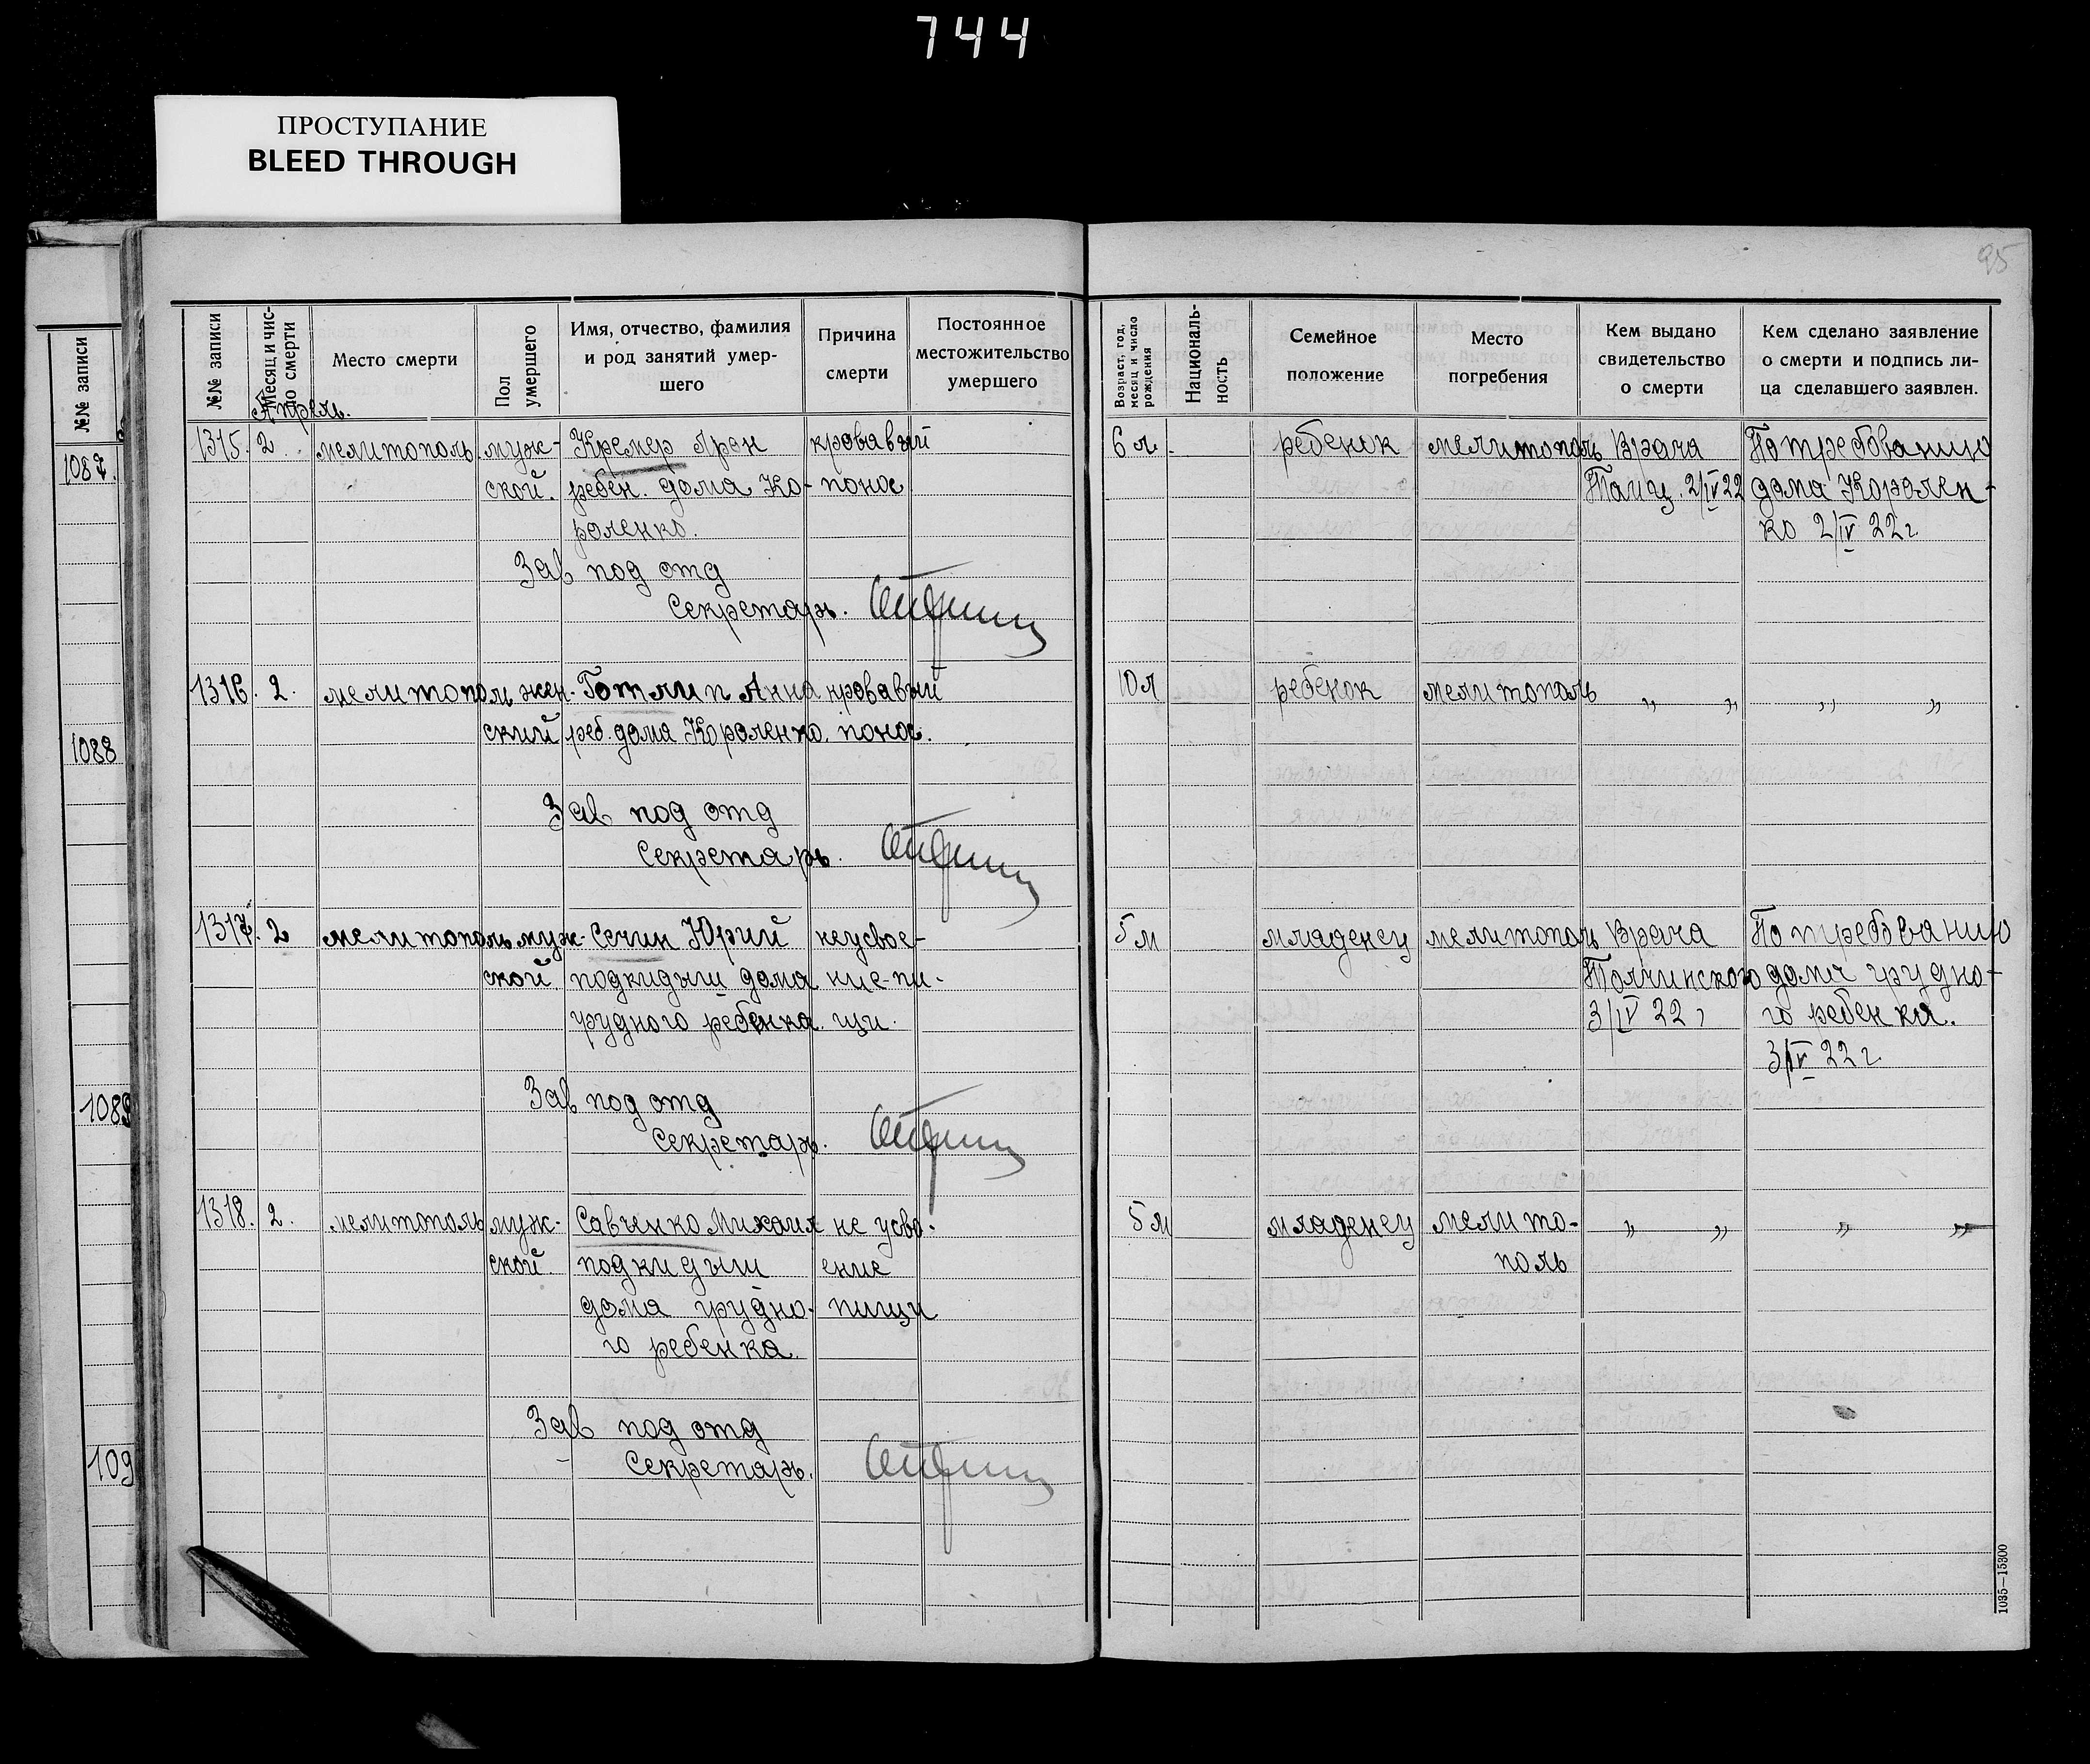 744
ПРОСТУПАНИЕ
BLEED THROUGH
95
№№ записи
1087.
1088
1089
109
№№ записи
Месяц и чис-
ло смерти
Место смерти
Пол
умершего
Имя, отчество, фамилия
и род занятий умер-
шего
Причина
смерти
Постоянное
местожительство
умершего
Возраст, год,
месяц и число
рождения
Националь-
ность
Семейное
положение
Место
погребения
Кем выдано
свидетельство
о смерти
Кем сделано заявление
о смерти и подпись ли-
ца сделавшего заявлен.
Апрель.
1315. 2. мелитополь. муж- Кремер Арон кровавый 6 л. ребенок мелитополь Врача По требованию
ской. ребен. дома Ко- понос Танц. 2/IV 22 дома Королен-
роленко. ко 2/IV 22 г.
Зав под отд
Секретарь.
1316. 2. мелитополь жен- Готлип Анна кровавый 10 л ребенок мелитополь „ „ „ „
ский реб. дома Короленко. понос.
Зав под отд
Секретарь.
1317. 2 мелитополь муж- Сечин Юрий неусвое- 5 м младенец мелитополь Врача По требованию
ской. подкидыш дома ние-пи- Толчинского дома грудно-
грудного ребенка. щи. 3/IV 22 г го ребенка.
3/IV 22 г.
Зав под отд
Секретарь.
1318. 2. мелитополь муж- Савченко Михаил не усво- 5 м младенец мелито- „ „ „ „
ской. подкидыш ение поль
дома грудно- пищи
го ребенка.
Зав под отд
Секретарь.
1035—15300